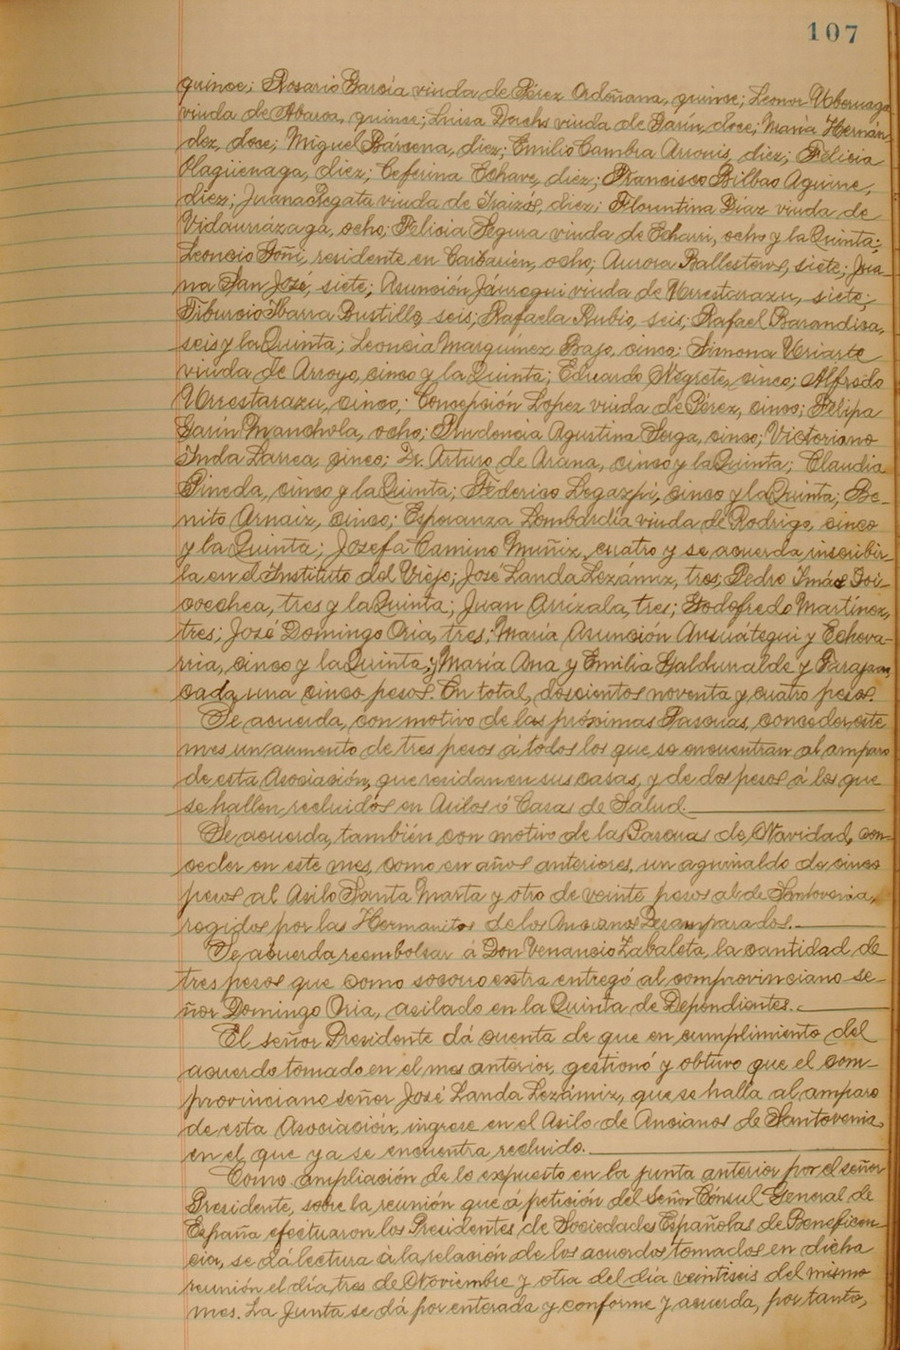 107
quince; Rosario García viuda de Pérez Ordoñana, quince; Leonor Uberuaga
viuda de Abaroa, quince; Luisa Dorchs viuda de Garín, doce; María Hernán-
dez, doce; Miguel Bárcena, diez; Emilio Cambra Arronis, diez; Felicia
Olagüenaga, diez; Ceferina Echave, diez; Francisco Bilbao Aguirre,
diez; Juana Regata viuda de Icaizos, diez; Florentina Díaz viuda de
Vidaurrázaga, ocho; Felicia Segura viuda de Echarri, ocho y la Quinta;
Leoncio Goñi, residente en Caibarien, ocho; Aurora Ballesteros, siete; Jua-
na San José, siete; Asunción Jáuregui viuda de Urrestarazu, siete;
Tiburcio Ibarra Bustillo, seis; Rafaela Rubio, seis; Rafael Barandica,
seis y la Quinta; Leoncia Marquínez Bajo, cinco; Simona Uriarte
viuda de Arroyo, cinco y la Quinta; Eduardo Negrete, cinco; Alfredo
Urrestarazu, cinco; Concepción Lopez viuda de Pérez, cinco; Felipa
Garin Manchola, ocho; Prudencia Agustina Suga, cinco; Victoriano
Inda Larrea, cinco; Dr. Arturo de Arana, cinco y la Quinta; Claudia
Pineda, cinco y la Quinta; Federico Legazpi, cinco y la Quinta; Be-
nito Arnaiz, cinco; Esperanza Lombardía viuda de Rodrigo, cinco
y la Quinta; Josefa Camino Muñiz, cuatro y se acuerda inscribir-
la en el Instituto del Viejo; José Landa Lezámiz, tres; Pedro Imáz Goi-
coechea, tres y la Quinta; Juan Arrizala, tres; Godofredo Martínez,
tres; José Domingo Oria, tres; María Asunción Ansuátegui y Echeva-
rria, cinco y la Quinta; y María Ana y Emilia Galdunalde y
cada una cinco pesos. En total, doscientos noventa y cuatro pesos.
Se acuerda, con motivo de las próximas Pascuas, conceder este
mes un aumento de tres pesos á todos los que se encuentran al amparo
de esta Asociación, que residan en sus casas, y de dos pesos á los que
se hallen recluidos en Asilos ó Casas de Salud.
Se acuerda, también con motivo de las Pascuas de Navidad, con-
ceder en este mes, como en años anteriores, un aguinaldo de cinco
pesos al Asilo Santa Marta y otro de veinte pesos al de Santovenia,
regidos por las Hermanitas de los Ancianos Desamparados.
Se acuerda reembolsar á Don Venancio Zabaleta, la cantidad de
tres pesos que como socorro extra entregó al comprovinciano se-
ñor Domingo Oria, asilado en la Quinta de Dependientes.
El señor Presidente dá cuenta de que en cumplimiento del
acuerdo tomado en el mes anterior, gestionó y obtuvo que el com-
provinciano señor José Landa Lezámiz, que se halla al amparo
de esta Asociación, ingrese en el Asilo de Ancianos de Santovenia,
en el que ya se encuentra recluido.
Como ampliación de lo expuesto en la junta anterior por el señor
Presidente, sobre la reunión que á petición del Señor Cónsul General de
España efectuaron los Presidentes de Sociedades Españolas de Beneficen-
cia, se dá lectura á la relación de los acuerdos tomados en dicha
reunión el día tres de Noviembre y otra del día veintiseis del mismo
mes. La Junta se dá por enterada y conforme y acuerda, por tanto,